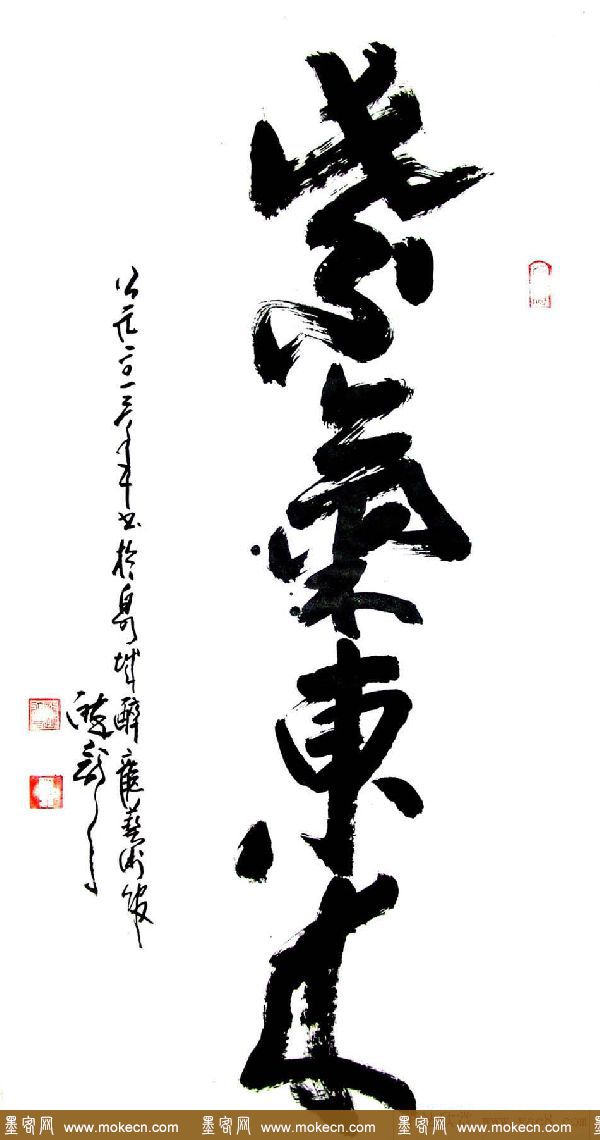 紫氣東来
公元二〇一三年書於泉城醉龍藝術館
墨客网 www.mokecn.com 墨客网 www.mokecn.com 墨客网 www.mokecn.com 墨客网